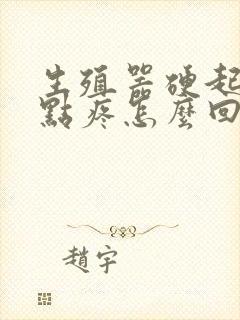 生殖器硬起
點疼怎麼回
趙宇